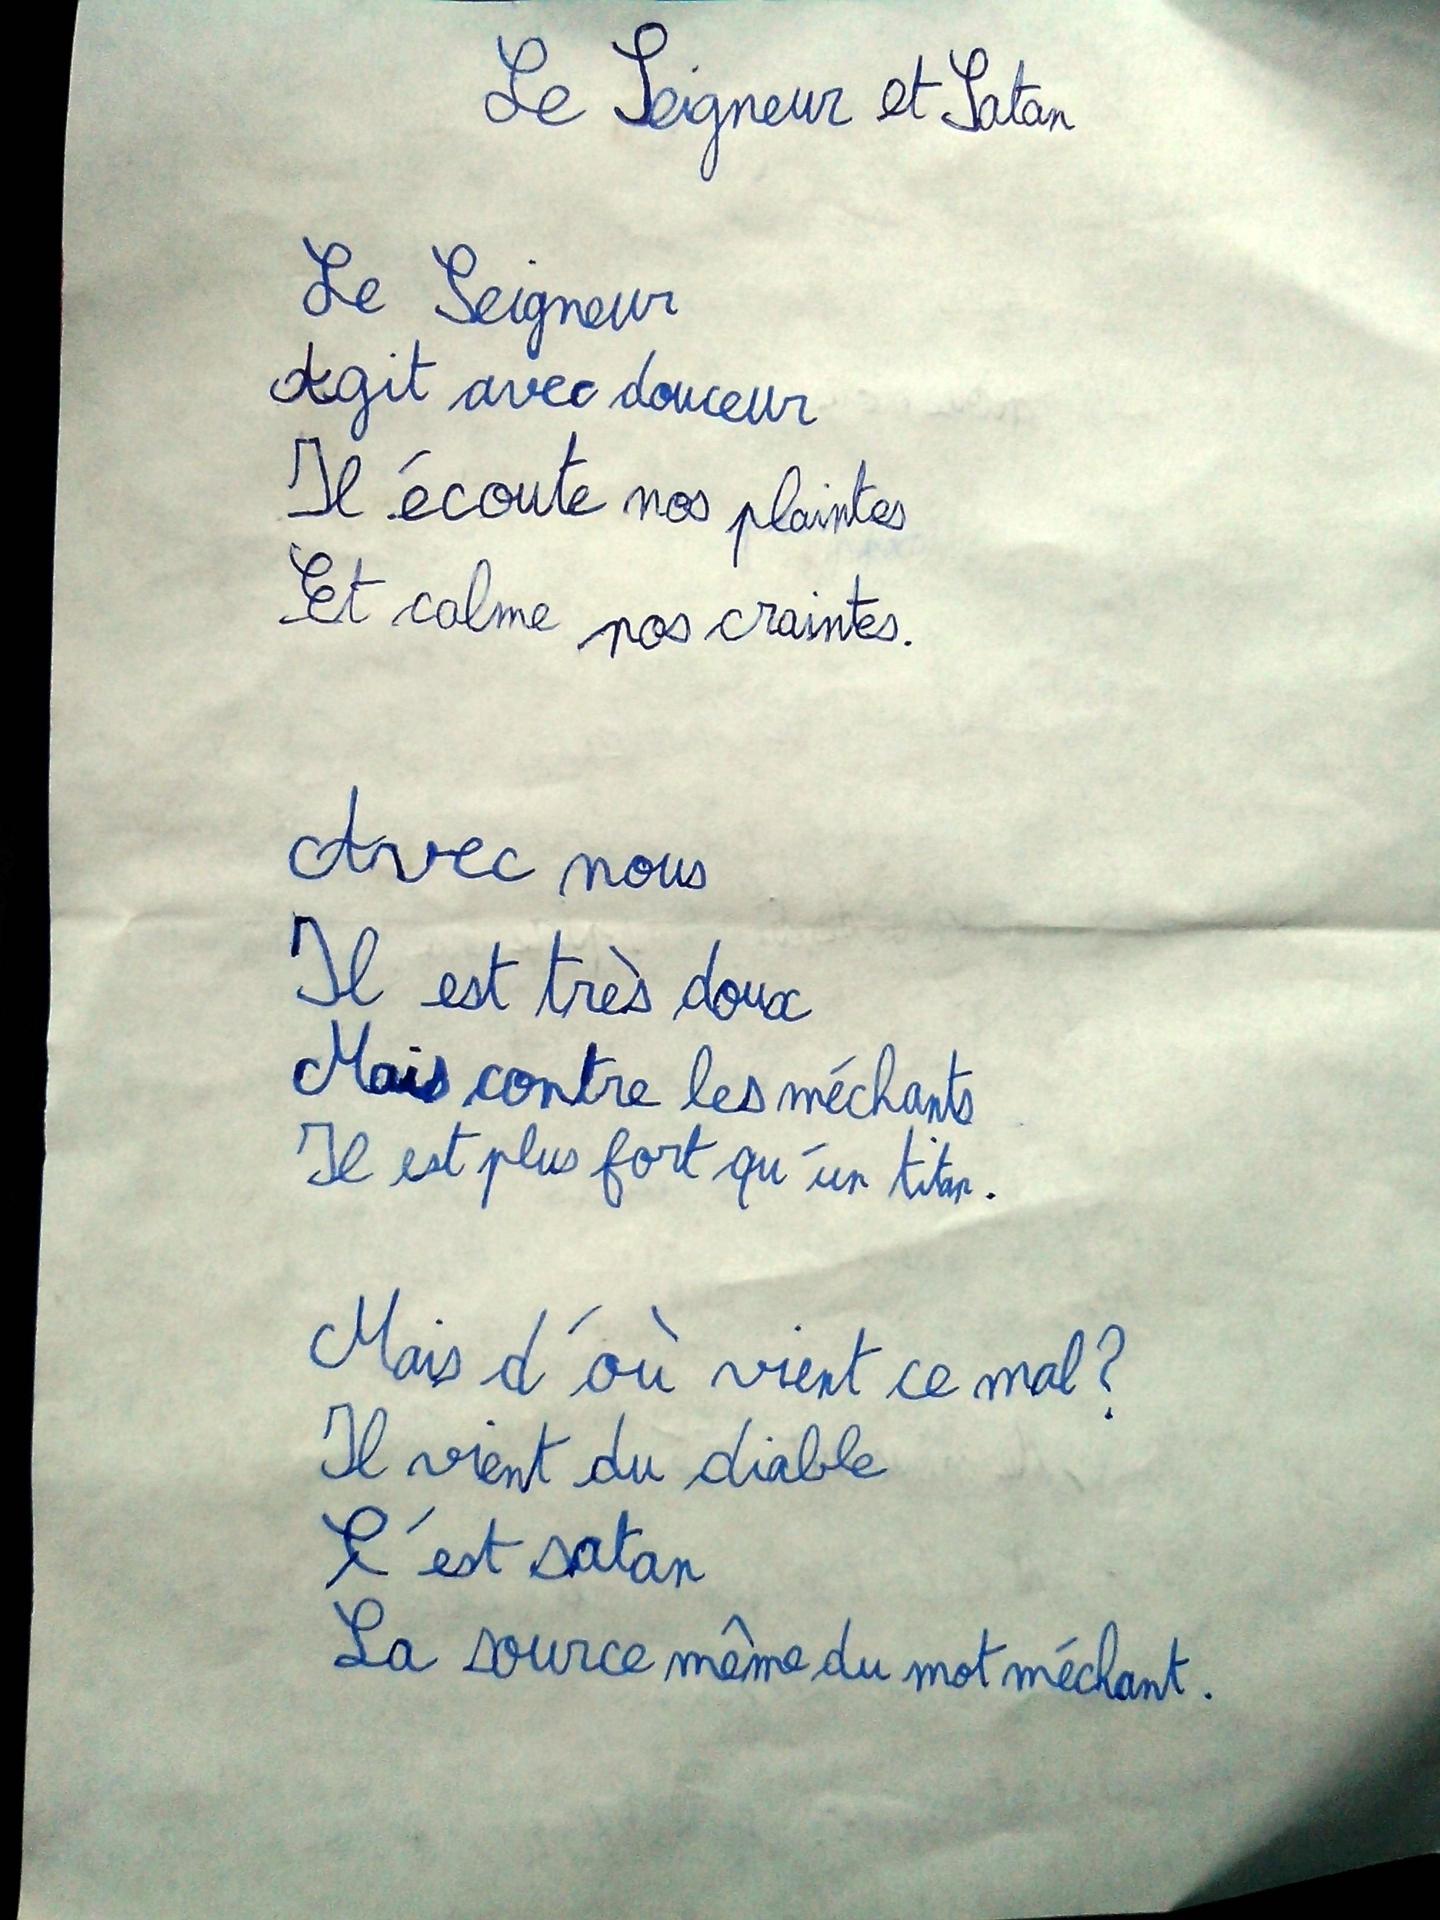 Le Seigneur et Satan
Le Seigneur
Agit avec douceur
Il écoute nos plaintes
Et calme nos craintes.
Avec nous
Il est très doux
Mais contre les méchants
Il est plus fort qu'un titan.
Mais d'où vient ce mal ?
Il vient du diable
C'est satan
La source même du mot méchant.